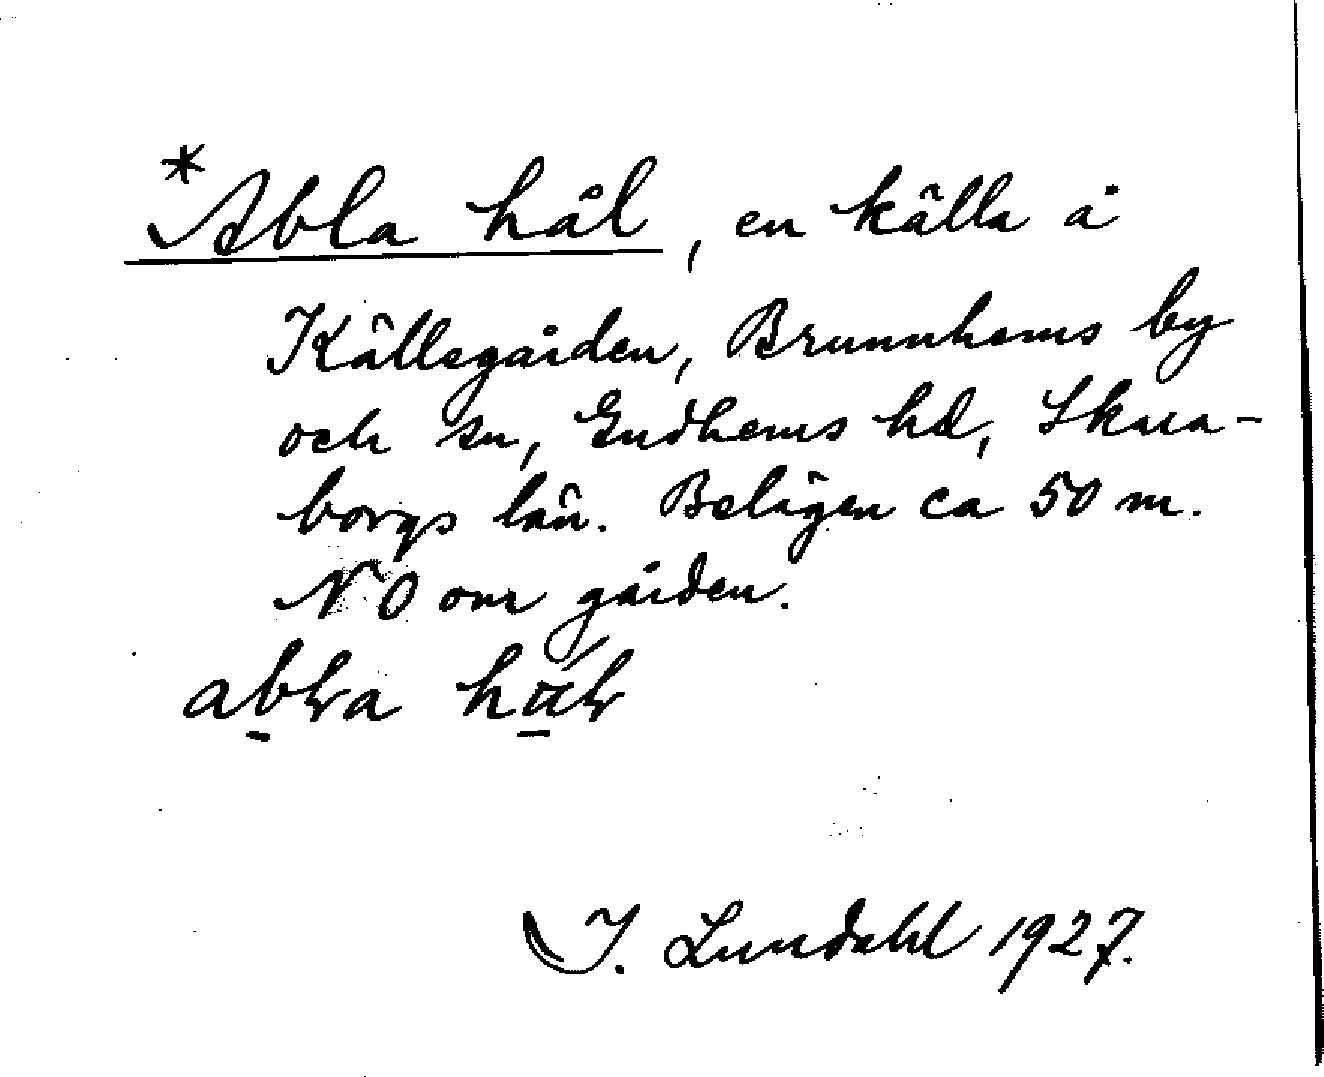 *Abla hål, en källa å
Källegården, Brunnhems by
och sn, Gudhems hd, Skara-
borgs län. Belägen ca 50 m.
NO om gården.
J. Lundahl 1927.